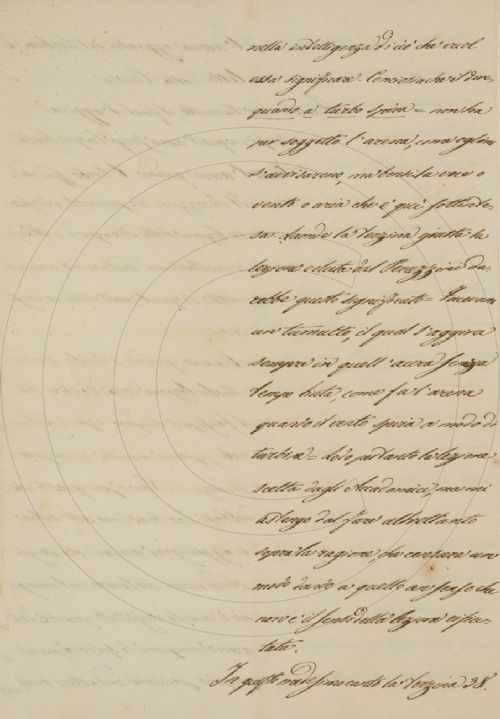 nella intelligenza di ciò che vuol
essa significare. Conciosiachè il dire
quando a turbo spira = non ha
per soggetto l'arena, come eglino
s'avvisarono, ma bensì la voce o
vento o aria che è quì sottinte-
sa. Laonde la terzina giusta la
lezione editata dal Perazzini da-
rebbe questo significato = Facevano
un tumulto, il qual s'aggira
sempre in quell'aura senza
tempo tinta, come fa l'arena
quando il vento spira a modo di
turbine = Lodo pertanto la lezione
scelta dagli Accademici, ma mi
astengo dal fare altrettanto
sopra la ragione, per censurare un
modo dando a quello un senso che
non è il senso della lezione rifiu-
tata.
In questo medesimo canto la terzina 38.